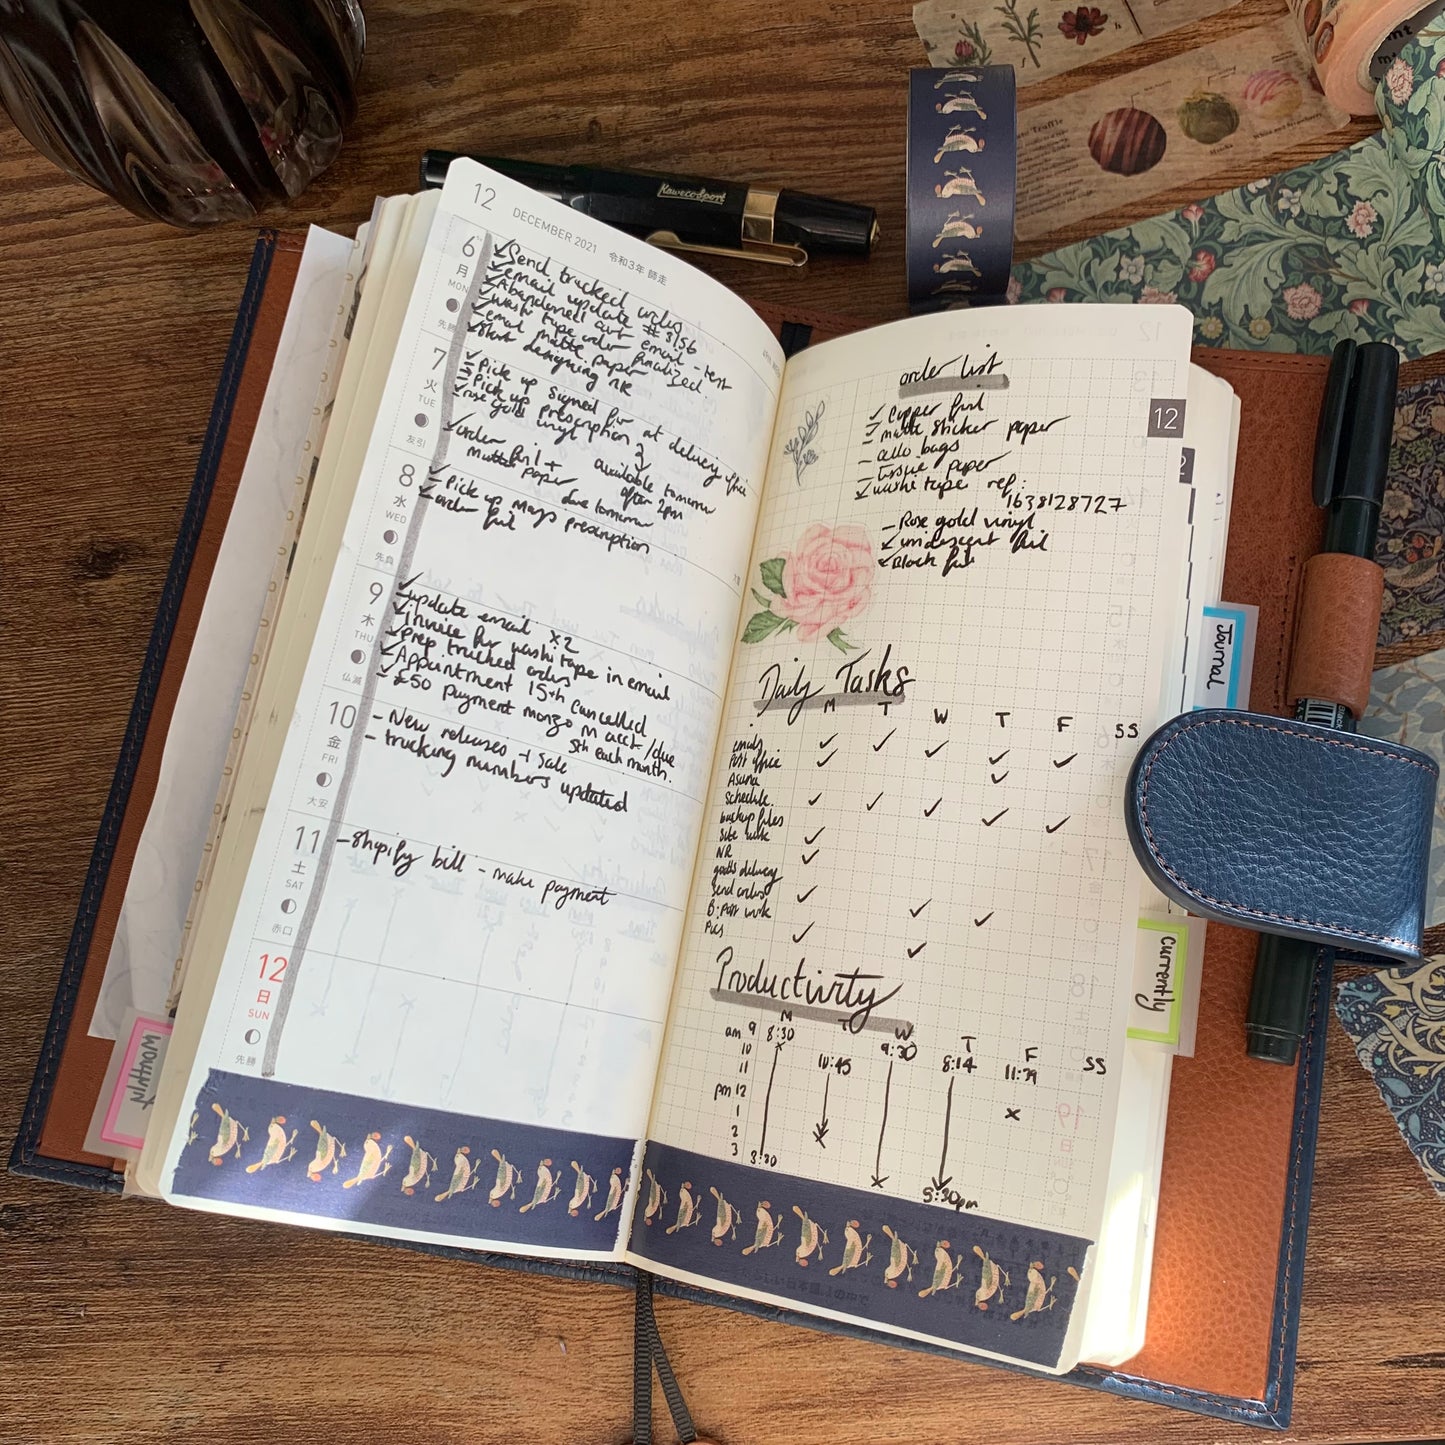 12 DECEMBER 2021 令和3年 師走
6 月 MON 先勝
Send tracked orders
email update #3156
Abandoned cart email - test
washi tape order finalized.
email matte paper
start designing NR
7 火 TUE 友引
Pick up signed for at delivery office
Pick up prescription
rose gold vinyl
available tomorrow
after 2pm
order foil +
matte paper
due tomorrow
8 水 WED 先負
- Pick up Mays prescription
order foil
9 木 THU 仏滅
update email x2
Invoice for washi tape in email
Prep tracked orders
Appointment 15th cancelled
£50 payment monzo M acct/due
5th each month.
10 金 FRI 大安
- New releases + sale
- tracking numbers updated
11 土 SAT 赤口
- Shopify bill - make payment
12 日 SUN 先勝
order list
Copper foil
matte sticker paper
- cello bags
- tissue paper
washi tape ref:
1638128727
- Rose gold vinyl
iridescent foil
Black foil
12
Daily Tasks
M T W T F SS
emails
Post office
Asana
schedule.
backup files
site work
NR
goods delivery
send orders
B. Post work
Pics
Productivity
M T W T F SS
am 9 8:30 9:30 8:14 11:39
10
11 10:45
pm 12
1
2
3 3:30
5:30pm
Journal
Currently
Kaweco Sport
Truffle
Mocha
mt